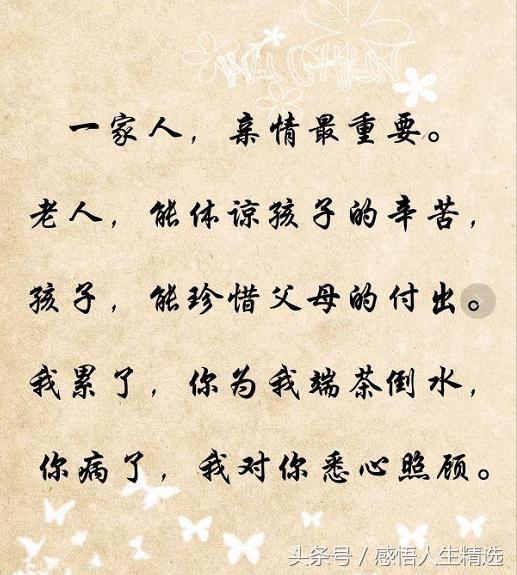 WU CHUN
一家人，亲情最重要。
老人，能体谅孩子的辛苦，
孩子，能珍惜父母的付出。
我累了，你为我端茶倒水，
你病了，我对你悉心照顾。
头条号 / 感悟人生精选